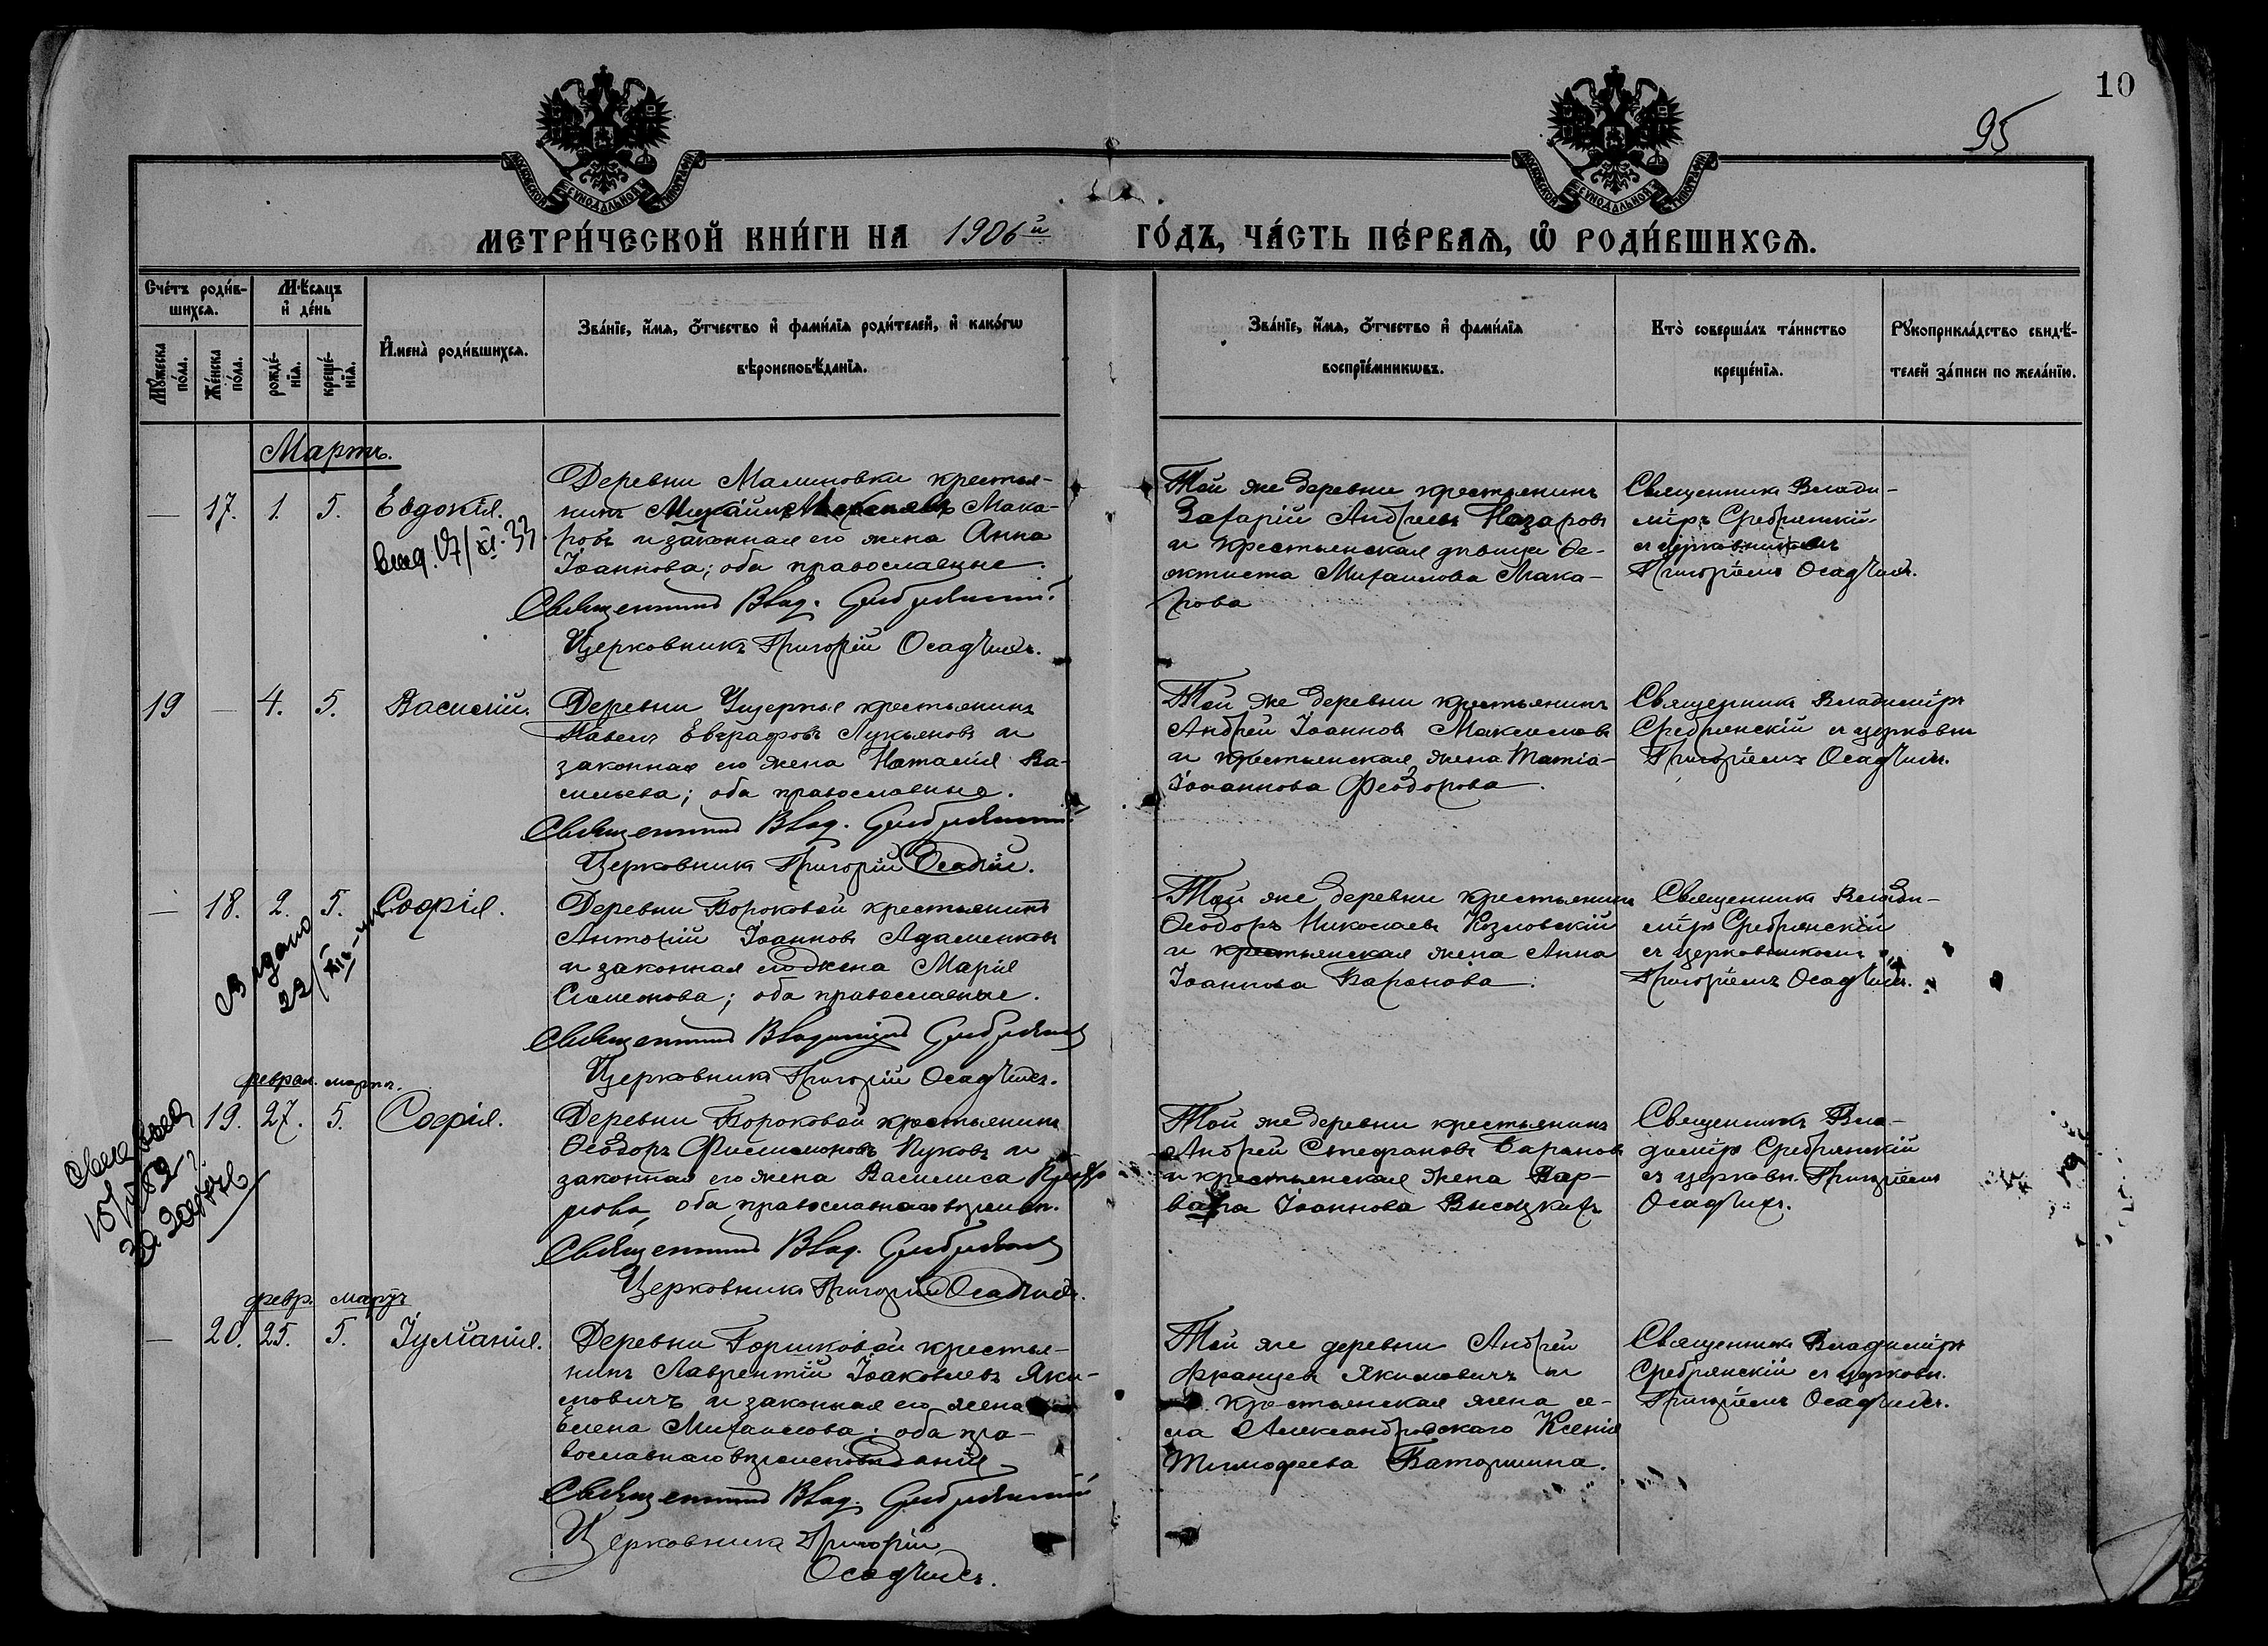 10
95
МОСКОВСКОЙ СѴНОДАЛЬНОЙ ТИПОГРАФІИ
МОСКОВСКОЙ СѴНОДАЛЬНОЙ ТИПОГРАФІИ
МЕТРИ́ЧЕСКОЙ КНИ́ГИ НА 1906й ГО́ДЪ, ЧА́СТЬ ПЕ́РВАѦ, Ѡ҆ РОДИ́ВШИХСѦ.
Сче́тъ роди́в-
шихсѧ.
Мѣ́сѧцъ
и҆ де́нь
Мꙋ́жеска
по́ла.
Же́нска
по́ла.
рожде́-
нїѧ.
креще́-
нїѧ.
И҆мена̀ роди́вшихсѧ.
Зва́нїе, и҆́мѧ, ѻ҆́тчество и҆ фами́лїѧ роди́телей, и҆ како́гѡ
вѣроисповѣ́данїѧ.
Зва́нїе, и҆́мѧ, ѻ҆́тчество и҆ фами́лїѧ
воспрїе́мникѡвъ.
Кто̀ соверша́лъ та́инство
креще́нїѧ.
Рꙋкоприкла́дство свидѣ́-
телей за́писи по жела́нїю.
Мартъ.
— 17. 1. 5. Евдокія.
Деревни Малиновки крестья-
нинъ Мака-
ровъ и законная его жена Анна
Іоаннова; оба православные.
Священникъ Влад. Сребрянскій
Церковникъ Григорій Осадчихъ.
Той же деревни крестьянинъ
Захарій Андреевъ Назаровъ
и крестьянская дѣвица Ѳе-
октиста Михаилова Мака-
рова
Священникъ Влади-
міръ Сребрянскій
съ церковникомъ
Григоріемъ Осадчихъ.
19 — 4. 5. Василій.
Деревни крестьянинъ
Павелъ Евграфовъ Лукьяновъ и
законная его жена Наталія Ва-
сильева; оба православные.
Священникъ Влад. Сребрянскій
Церковникъ Григорій Осадчій.
Той же деревни крестьянинъ
Андрей Іоанновъ Максимовъ
и крестьянская жена
Іоаннова Феодорова.
Священникъ Владиміръ
Сребрянскій съ церковн
Григоріемъ Осадчихъ.
— 18. 2. 5. Софія.
Выдано
22/XII
Деревни Бороковой крестьянинъ
Антоній Іоанновъ Адаменковъ
и законная его жена Марія
Симеонова; оба православные.
Священникъ Владиміръ Сребрянскій
Церковникъ Григорій Осадчихъ.
Той же деревни крестьянинъ
Ѳеодоръ Николаевъ Козловскій
и крестьянская жена Анна
Іоаннова Баранова.
Священникъ Влади-
міръ Сребрянскій
съ церковникомъ
Григоріемъ Осадчихъ.
феврал. мартъ.
19. 27. 5. Софія.
Деревни Бороковой крестьянинъ
Ѳеодоръ Филимоновъ Пуковъ и
законная его жена Василиса
оба православнаго вѣроисп.
Священникъ Влад. Сребрянскій
Церковникъ Григорій Осадчихъ.
Той же деревни крестьянинъ
Андрей Стефановъ Барановъ
и крестьянская жена Вар-
вара Іоаннова Высоцкихъ
Священникъ Вла-
диміръ Сребрянскій
съ церковн. Григоріемъ
Осадчихъ.
февр. мартъ
— 20. 25. 5. Іуліанія.
Деревни Горшковой крестья-
нинъ Лаврентій Іаковлевъ Яки-
мовичъ и законная его жена
Елена Михаилова; оба пра-
вославнаго вѣроисповѣданія
Священникъ Влад. Сребрянскій
Церковникъ Григорій
Осадчихъ.
Той же деревни Андрей
Францевъ Якимовичъ и
крестьянская жена се-
ла Александровскаго Ксенія
Тимофеева Баторшина.
Священникъ Владиміръ
Сребрянскій съ церковн.
Григоріемъ Осадчихъ.